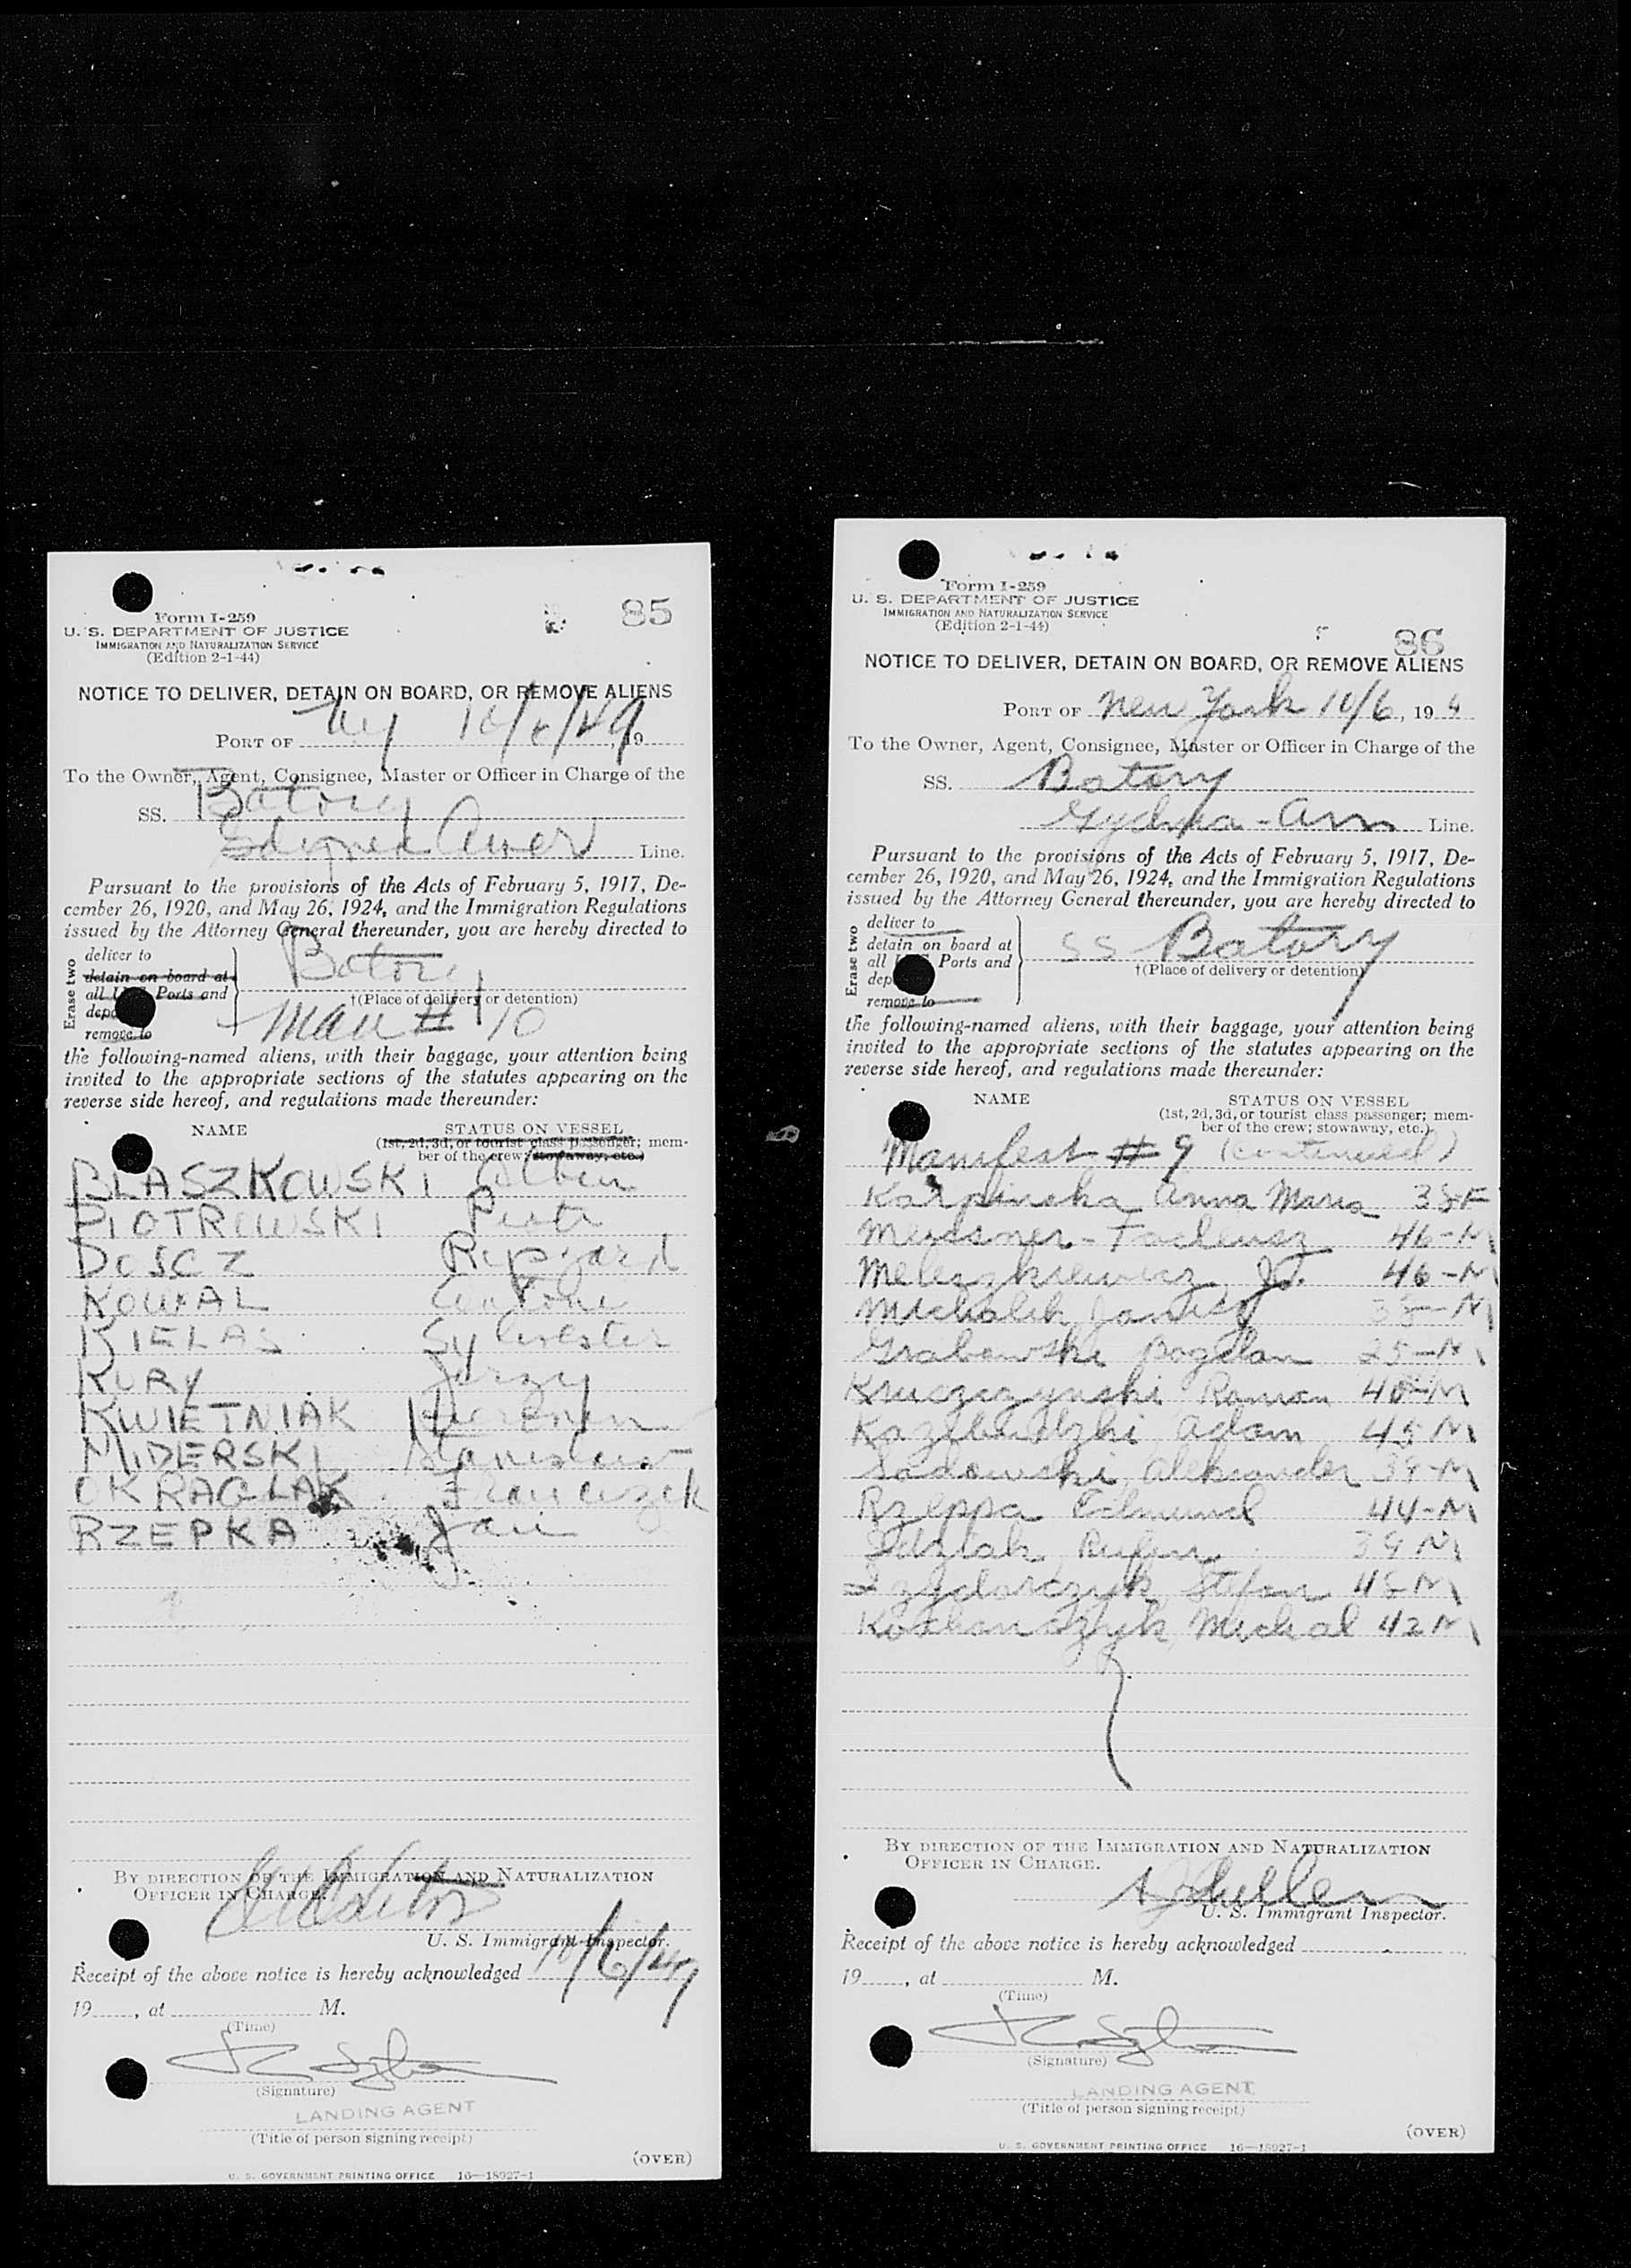 Form I-259
U. S. DEPARTMENT OF JUSTICE
IMMIGRATION AND NATURALIZATION SERVICE
(Edition 2-1-44)
85
NOTICE TO DELIVER, DETAIN ON BOARD, OR REMOVE ALIENS
PORT OF NY 10/6/49, 19
To the Owner, Agent, Consignee, Master or Officer in Charge of the
SS. Batory
Gdynia Amer Line.
Pursuant to the provisions of the Acts of February 5, 1917, De-
cember 26, 1920, and May 26, 1924, and the Immigration Regulations
issued by the Attorney General thereunder, you are hereby directed to
Erase two
deliver to
detain on board at
all U.S. Ports and
remove to
Batory
†(Place of delivery or detention)
Man # 10
the following-named aliens, with their baggage, your attention being
invited to the appropriate sections of the statutes appearing on the
reverse side hereof, and regulations made thereunder:
NAME STATUS ON VESSEL
(1st, 2d, 3d, or tourist class passenger; mem-
ber of the crew; stowaway, etc.)
BLASZKOWSKI Albin
PIOTROWSKI Piotr
DOSCZ Ryszard
KOWAL Antoni
KIELAS Sylwester
KURY Jerzy
KWIETNIAK Hieronim
MIDERSKI Stanislaw
OKRAGLAK Franciszek
RZEPKA Jan
BY DIRECTION OF THE IMMIGRATION AND NATURALIZATION
OFFICER IN CHARGE.
U. S. Immigrant Inspector.
Receipt of the above notice is hereby acknowledged 10/6/49
19 , at M.
(Time)
(Signature)
LANDING AGENT
(Title of person signing receipt)
(OVER)
U. S. GOVERNMENT PRINTING OFFICE 16—18927-1
Form I-259
U. S. DEPARTMENT OF JUSTICE
IMMIGRATION AND NATURALIZATION SERVICE
(Edition 2-1-44)
86
NOTICE TO DELIVER, DETAIN ON BOARD, OR REMOVE ALIENS
PORT OF New York 10/6, 19 4
To the Owner, Agent, Consignee, Master or Officer in Charge of the
SS. Batory
Gydnia-Am Line.
Pursuant to the provisions of the Acts of February 5, 1917, De-
cember 26, 1920, and May 26, 1924, and the Immigration Regulations
issued by the Attorney General thereunder, you are hereby directed to
Erase two
deliver to
detain on board at
all Ports and
remove to
SS Batory
†(Place of delivery or detention)
the following-named aliens, with their baggage, your attention being
invited to the appropriate sections of the statutes appearing on the
reverse side hereof, and regulations made thereunder:
NAME STATUS ON VESSEL
(1st, 2d, 3d, or tourist class passenger; mem-
ber of the crew; stowaway, etc.)
Manifest # 9 (continued)
Karpinska Anna Maria 38F
Meissner-Tadeusz 46-M
Meleszkiewicz 46-M
Michalik M
Grabowski Bogdan 25-M
Roman 40-M
Adam 45 M
Sadowski Aleksander 38-M
Rzeppa Edmund 44-M
39 M
Szydlarczyk Stefan M
Kochanczyk Michal 42 M
BY DIRECTION OF THE IMMIGRATION AND NATURALIZATION
OFFICER IN CHARGE.
U. S. Immigrant Inspector.
Receipt of the above notice is hereby acknowledged
19 , at M.
(Time)
(Signature)
LANDING AGENT
(Title of person signing receipt)
(OVER)
U. S. GOVERNMENT PRINTING OFFICE 16—18927-1